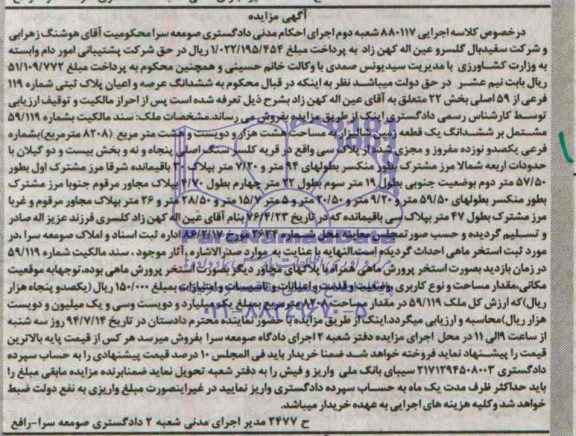 آگهی مزایده
درخصوص کلاسه اجرایی ۸۸۰۱۱۷ شعبه دوم اجرای احکام مدنی دادگستری صومعه سرا محکومیت آقای هوشنگ زهرابی
و شرکت سفیدبال گلسرو عین اله کهن زاد به پرداخت مبلغ ۱/۰۲۲/۱۹۵/۴۵۴ ریال در حق شرکت پشتیبانی امور دام وابسته
به وزارت کشاورزی با مدیریت سیدیونس صمدی با وکالت خانم حسینی و همچنین محکوم به پرداخت مبلغ ۵۱/۱۰۹/۷۷۲
ریال بابت نیم عشر در حق دولت میباشد نظر به اینکه در قبال محکوم به ششدانگ عرصه و اعیان پلاک ثبتی شماره ۱۱۹
فرعی از ۵۹ اصلی بخش ۲۲ متعلق به آقای عین اله کهن زاد بشرح ذیل تعرفه شده است پس از احراز مالکیت و توقیف ارزیابی
توسط کارشناس رسمی دادگستری اینک از طریق مزایده بفروش می رساند. مشخصات ملک: سند مالکیت بشماره ۵۹/۱۱۹
مشتمل بر ششدانگ یک قطعه زمین شالیزار به مساحت هشت هزار و دویست و هشت متر مربع (۸۲۰۸ مترمربع) بشماره
فرعی یکصدو نوزده مفروز و مجزی شده از پلاک سی واقع در قریه کلسر سنگ اصلی پنجاه و نه و بخش بیست و دو گیلان با
حدودات اربعه شمالا مرز مشترک بطور منکسر بطولهای ۹۴ متر و ۷/۲۰ متر بپلاک ۳۰ باقیمانده شرقا مرز مشترک اول بطور
۵۷/۵۰ متر دوم بوضعیت جنوبی بطول ۱۹ متر سوم بطول ۲۲ متر چهارم بطول ۴/۷۰ بپلاک مجاور مرقوم جنوبا مرز مشترک
بطور منکسر بطولهای ۵۹/۵۰ متر و ۹/۲۰ متر و ۲۰/۵۰ متر و ۵ متر ۱۵/۷ متر و ۲۸/۵۰ متر و ۲۶ متر بپلاک مجاور مرقوم و غربا
مرز مشترک بطول ۴۷ متر بپلاک سی باقیمانده که در تاریخ ۷۶/۴/۲۳ بنام آقای عین اله کهن زاد کلسری فرزند عزیز اله صادر
و تسلیم گردیده و حسب صورتمجلس معاینه محل شماره ۳۶۳۴ مورخ ۸۶/۲/۱۷ اداره ثبت اسناد و املاک صومعه سرا، در
مورد ثبت استخر ماهی احداث گردیده است. النهایه با عنایت به موارد صدرالاشاره آثار موجود، سند مالکیت شماره ۵۹/۱۱۹
در زمان بازدید بصورت استخر پرورش ماهی همراه با پلاکهای مجاور دیگر بصورت استخر پرورش ماهی بوده، توجهابه موقعیت
مکانی، مقدار مساحت و نوع کاربری بوضعیت و قدمت و اعیانات و تاسیسات و امتیازات بمبلغ ۱۵۰/۰۰۰ ریال (یکصدو پنجاه هزار
ریال) که ارزش کل ملک ۵۹/۱۱۹ در مقدار مساحت ۸۲۰۸ مترمربع بمبلغ یک میلیارد و دویست وسی و یک میلیون و دویست
هزار ریال) محاسبه و ارزیابی میگردد. اینک از طریق مزایده با حضور نماینده محترم دادستان در تاریخ ۹۴/۷/۱۴ روز سه شنبه
از ساعت ۹الی ۱۱ در محل اجرای مزایده دفتر شعبه ۲ اجرای دادگاه صومعه سرا بفروش میرسد هر کس از قیمت پایه بالاترین
قیمت را پیشنهاد نماید فروخته خواهد شد. ضمنا خریدار باید فی المجلس ۱۰ درصد قیمت پیشنهادی را به حساب سپرده
دادگستری ۲۱۷۱۲۹۴۵۰۸۰۰۳ سیبای بانک ملی واریز و فیش را به دفتر شعبه تحویل نماید ضمنابرنده مزایده مابقی مبلغ را
باید حداکثر ظرف مدت یک ماه به حساب سپرده دادگستری واریز نمایید در غیراینصورت مبلغ واریزی به نفع دولت ضبط
خواهد شد و کلیه هزینه های اجرایی به عهده خریدار میباشد.
ح ۲۴۷۷ مدیر اجرای مدنی شعبه ۲ دادگستری صومعه سرا-رافع
ParsNamadData
۰۲۱-۸۸۳۴۹۶۷۰-۵